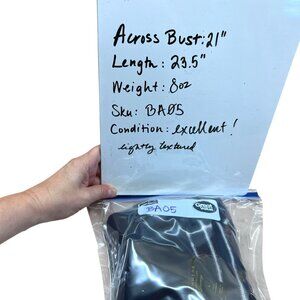 Across Bust: 21"
Length: 23.5"
Weight: 8oz
Sku: BA05
Condition: excellent!
lightly textured
BA05
Great
Value